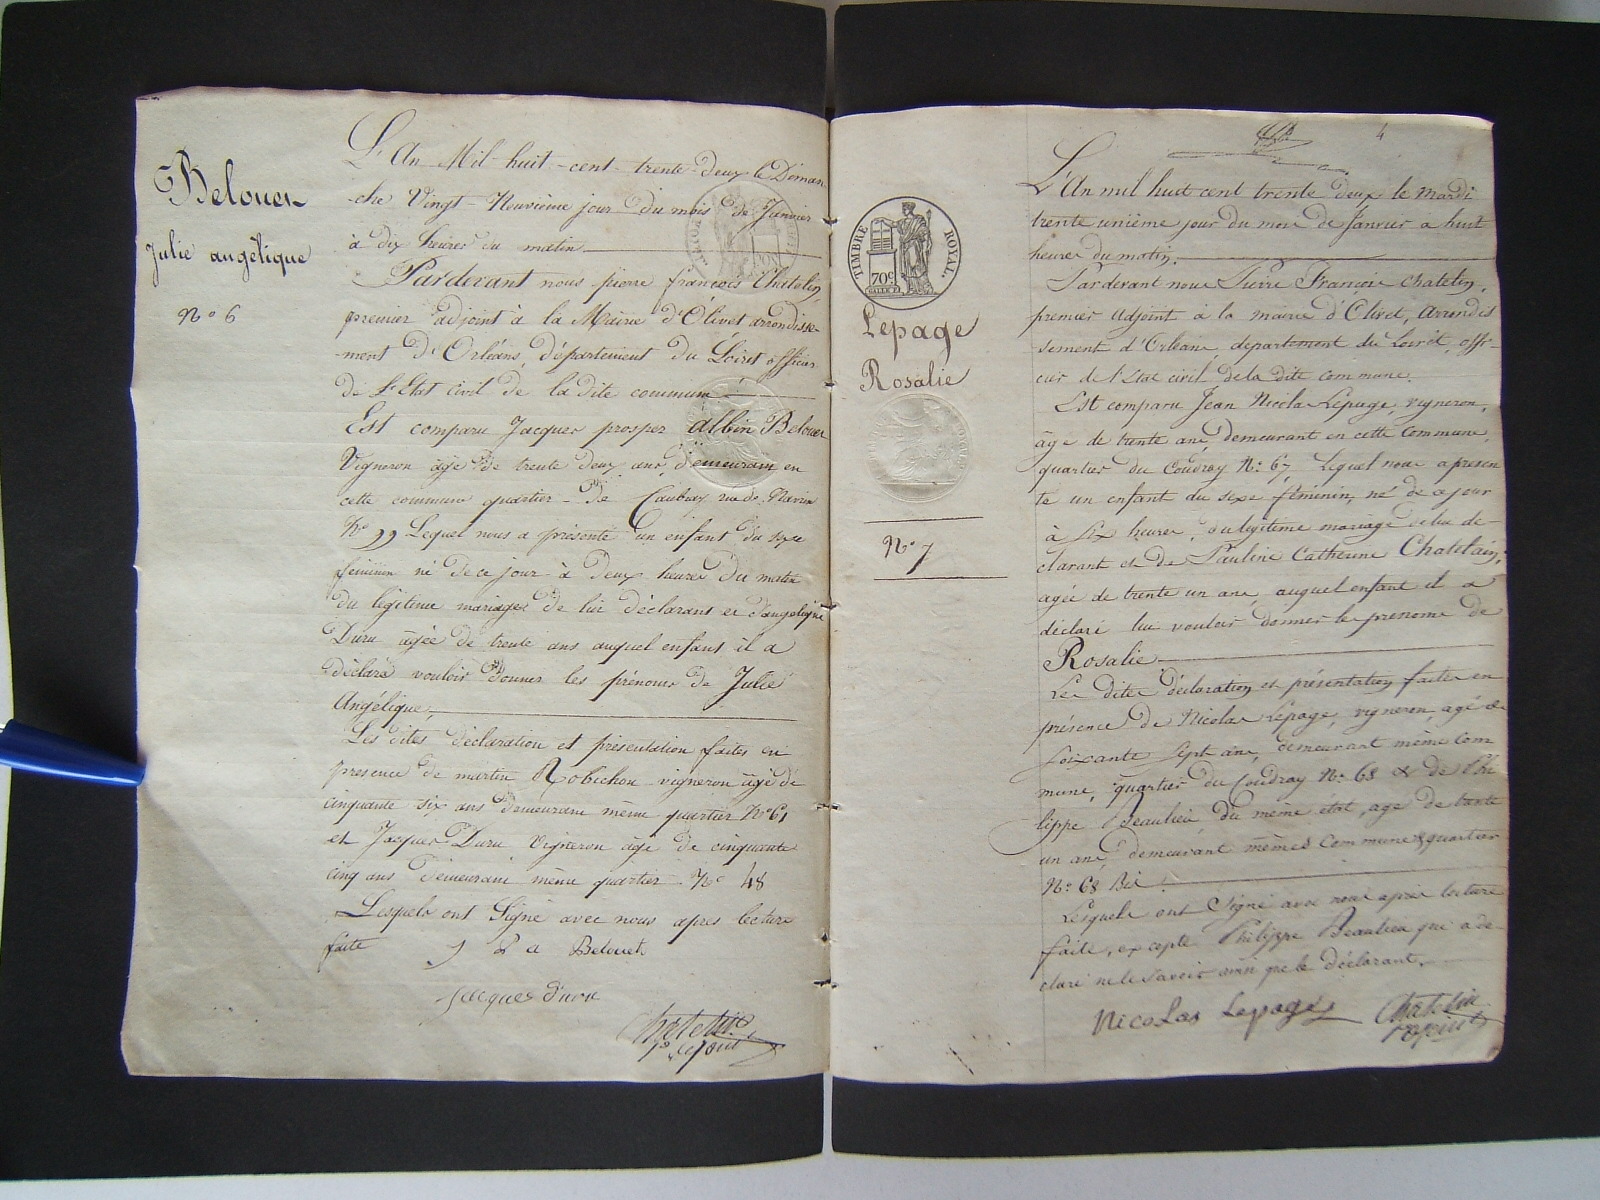 Belouet
Julie angélique
No 6
L'An Mil huit cent trente deux le Diman
che Vingt Neuvième jour du mois de Janvier
à dix heures du matin
Pardevant nous pierre françois Chatelin,
premier adjoint à la Mairie d'Olivet arrondisse-
ment d'Orléans, département du Loiret officier
de l'Etat civil de la dite commune
Est comparu Jacques prosper albin Belouet
Vigneron âgé de trente deux ans, demeurant en
cette commune quartier de Caubray rue du
No 99 Lequel nous a présenté un enfant du sexe
féminin né de ce jour à deux heures du matin
du légitime mariage de lui déclarant et d'angelique
Duru âgée de trente ans auquel enfant il a
déclaré vouloir donner les prénoms de Julie
Angélique,
Les dites déclaration et présentation faites en
presence de martin Robichon vigneron âgé de
cinquante six ans demeurant même quartier No 61
et Jacques Duru Vigneron âgé de cinquante
cinq ans demeurant même quartier No 48
Lesquels ont signé avec nous apres lecture
faite J P a Belouet
Jacques duru
Chatelin
adjoint
4
TIMBRE ROYAL.
70c
Lepage
Rosalie
No 7
L'An mil huit cent trente deux le mardi
trente unième jour du mois de Janvier à huit
heures du matin.
Pardevant nous Pierre François Chatelin,
premier adjoint à la mairie d'Olivet, arrondis
sement d'Orléans, département du Loiret, offi-
cier de l'Etat civil de la dite commune.
Est comparu Jean Nicolas Lepage, vigneron,
âgé de trente ans, demeurant en cette commune,
quartier du Coudray No 67, Lequel nous a présen
té un enfant du sexe féminin, né de ce jour
à six heures, du légitime mariage de lui dé-
clarant et de Pauline Catherine Chatelain,
agée de trente un ans, auquel enfant il a
déclaré lui vouloir donner le prénoms de
Rosalie
Les dites déclaration et présentation faites en
présence de Nicolas Lepage, vigneron, agé de
soixante sept ans, demeurant même com
mune, quartier du Coudray No 68 & de Phi
lippe Beaulieu du même état, agé de trente
un ans, demeurant mêmes commune & quartier
No 68 Bis.
Lesquels ont signé avec nous après lecture
faite, excepté Philippe Beaulieu qui a dé-
claré ne le savoir ainsi que le déclarant.
Nicolas Lepage
Chatelin
adjoint